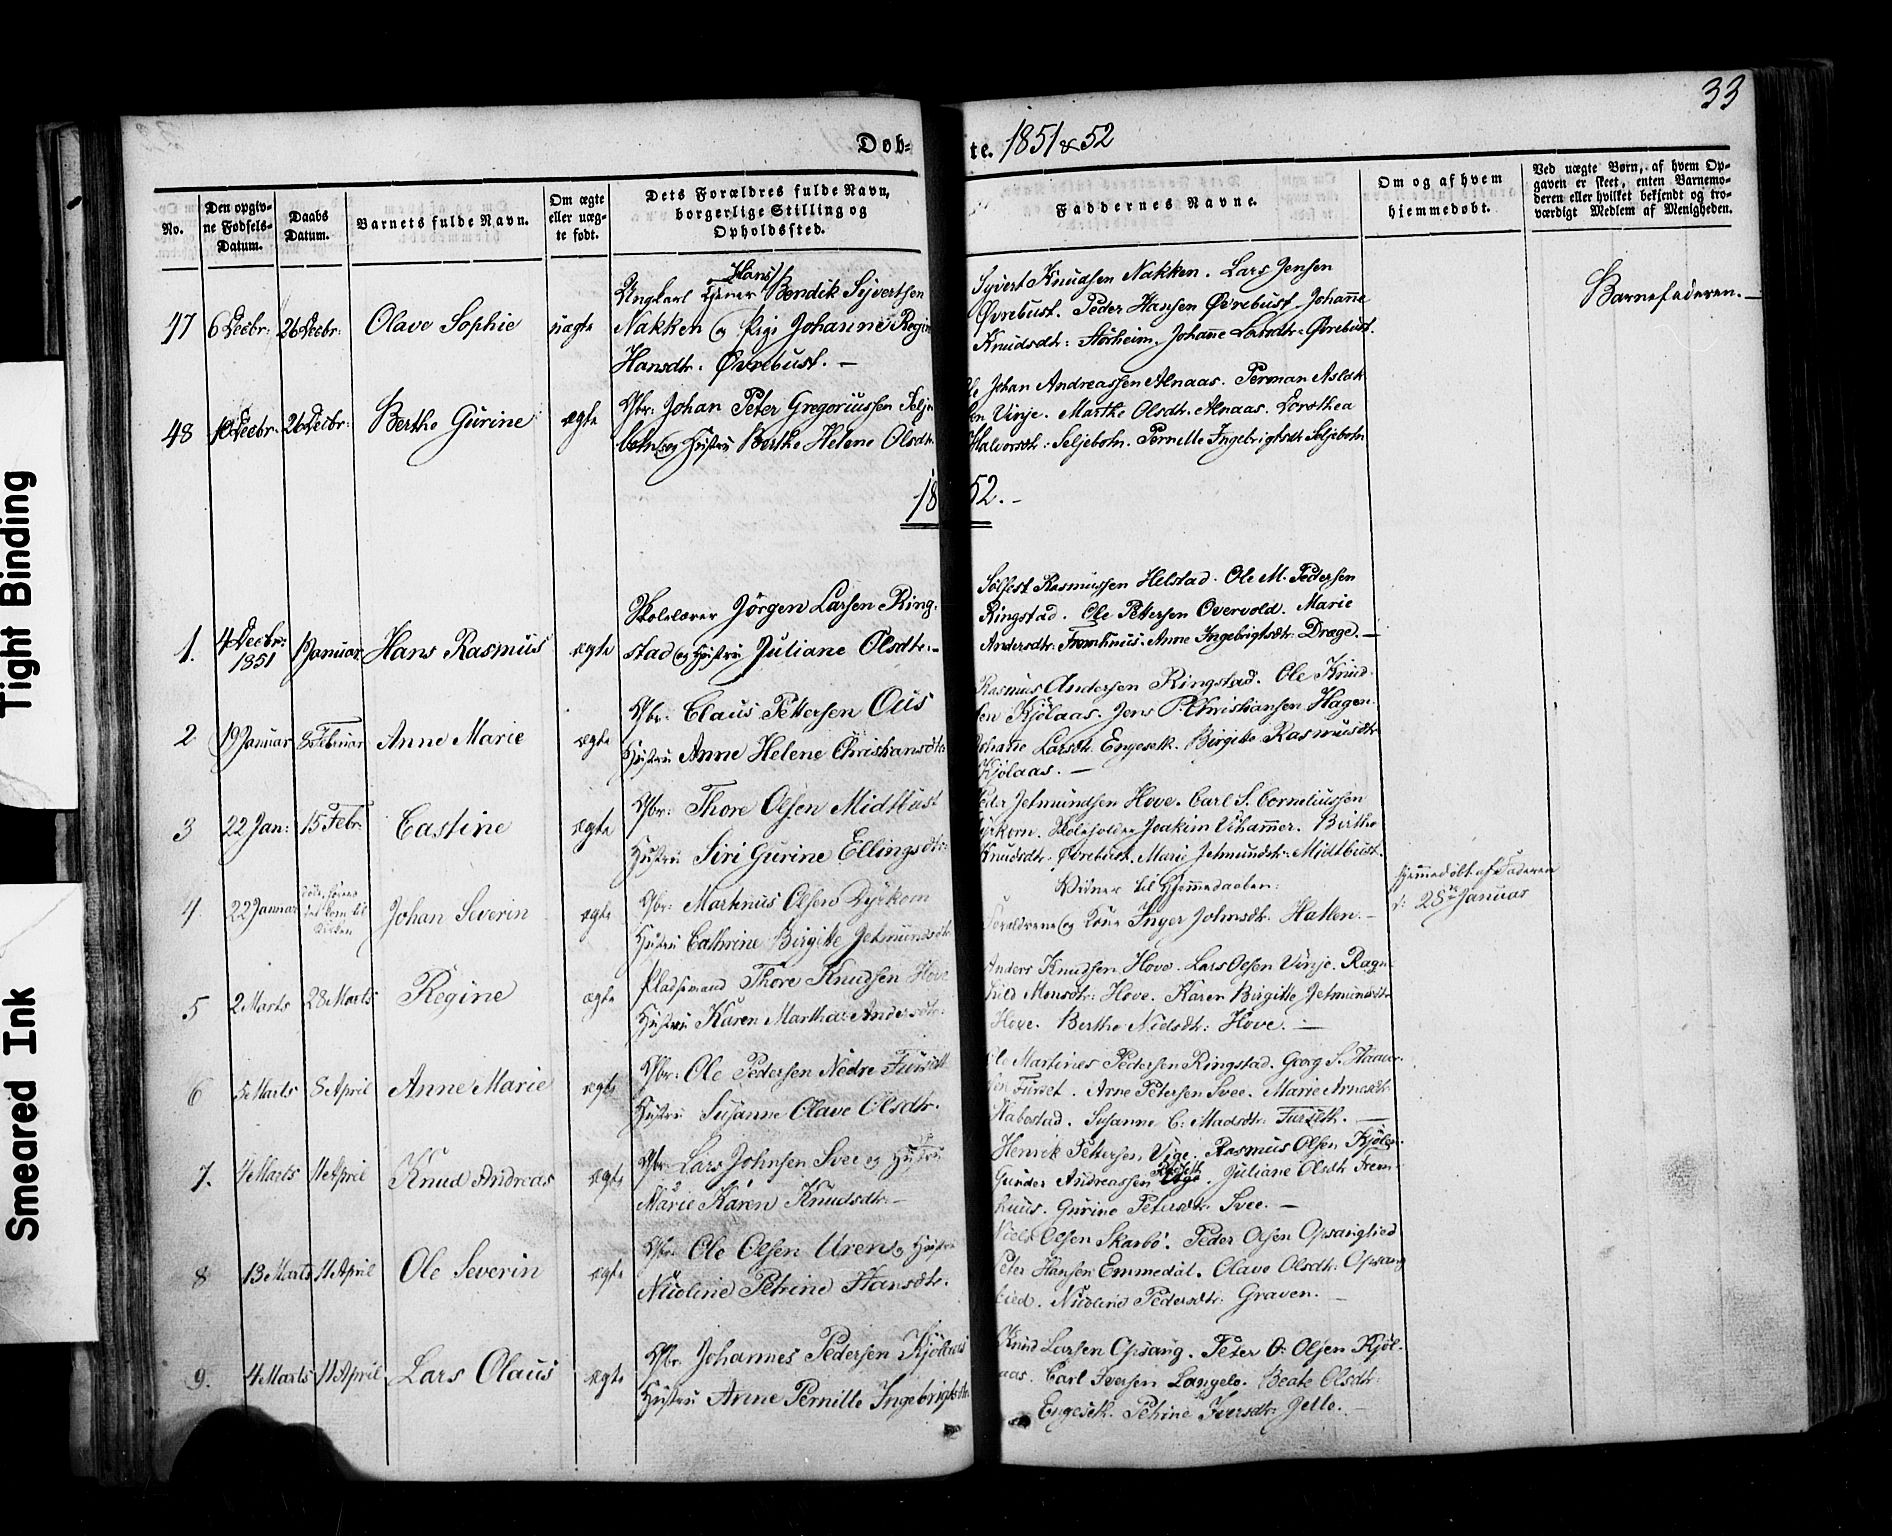 33
Døb- te. 1851 & 52
No.
Den opgiv-
ne Fødsels-
Datum.
Daabs
Datum.
Barnets fulde Navn.
Om ægte
eller uæg-
te født.
Dets Forældres fulde Navn,
borgerlige Stilling og
Opholdssted.
Faddernes Navne.
Om og af hvem
hjemmedøbt.
Ved uægte Børn, af hvem Op-
gaven er skeet, enten Barnemo-
deren eller hvilket bekjendt og tro-
værdigt Medlem af Menigheden.
47 6 Decbr: 26 Decbr: Olave Sophie uægte
Hans
Ungkarl Tjener Bendik Syvertsen
Nakken og Pige Johanne Regine
Hansdtr. Øvrebust. —
Syvert Knudsen Nakken. Lars Jensen
Øvrebust. Peder Hansen Øvrebust. Johanne
Knudsdtr: Størheim. Johanne Larsdtr. Øvrebust.
Barnefaderen. —
48 10 Decbr. 26 Decbr: Berthe Gurine ægte
Gbr: Johan Peter Gregoriussen Selje
botn og Hustru Berthe Helene Olsdtr.
Ole Johan Andreassen Alnaas. Perman Aslak
sen Vinje. Marthe Olsdtr. Alnaas. Dorothea
Halvorsdtr: Seljebotn. Pernille Ingebrigtsdtr Seljebotn
1852. —
1. 4 Decbr: 1851 1 Januar Hans Rasmus ægte
Skolelærer Jörgen Larsen Ring-
stad og Hustru Juliane Olsdtr. —
Sølfest Rasmussen Helstad. Ole M. Pedersen
Ringstad. Ole Pettersen Overvold. Marie
Andersdtr. Fremhuus. Anne Ingebrigtsdtr. Drage. —
2 19 Januar 8 Februar Anne Marie ægte
Gbr: Claus Pettersen Ous
Hustru Anne Helene Christiansdtr
Rasmus Andersen Ringstad. Ole Knud-
sen Kjølaas. Jens P. Christiansen Hagen.
Johanne Larsdtr. Engeseth. Birgitte Rasmusdtr
Kjølaas. —
3 22 Jan: 15 Febr. Castine ægte
Gbr: Thore Olsen Midtbust
Hustru Siri Gurine Ellingsdtr:
Peder Jetmundsen Hove. Carl S. Corneliussen
Dyrkorn. Joakim Uhammer. Birthe
Knudsdtr. Øvrebust. Marie Jetmundsdtr: Midtbust.
4 22 Januar Johan Severin ægte
Gbr: Martinus Olsen Dyrkorn
Hustru Cathrine Birgitte Jetmundsdtr
Vidner til Hjemmedaaben:
Forældrene og Kone Inger Johnsdtr. Hatlen. —
Hjemmedöbt af Faderen
d: 28de Januar
5 2 Marts 28 Marts Regine ægte
Pladsmand Thore Knudsen Hove
Hustru Karen Martha Andersdtr:
Anders Knudsen Hove. Lars Olsen Vinje. Ragn-
hild Monsdtr: Hove. Karen Birgitte Jetmundsdtr
Hove. Berthe Nielsdtr: Hove. —
6 5 Marts 8 April Anne Marie ægte
Gbr: Ole Pedersen Nedre Furseth
Hustru Susanne Olave Olsdtr.
Ole Martines Pedersen Ringstad. Georg S.
Furset. Arne Petersen Svee. Marie Arnesdtr.
Habostad. Susanne C. Madsdtr: Furseth. —
7. 4 Marts 11 April Knud Andreas ægte
Gbr: Lars Johnsen Svee og Hustru
Marie Karen Knudsdtr. —
Henrik Pettersen Vige. Rasmus Olsen Kjøla-
Gunder Andreassen . Juliane Olsdtr. Frem-
huus. Gurine Petersdtr. Svee. —
8 13 Marts 11 April Ole Severin ægte
Gbr: Ole Olsen Uren og Hustru
Nicoline Petrine Hansdtr.
Niels Olsen Skarbö. Peder Olsen Opsanglied
Peter Hansen Emmedal. Olave Olsdtr: Opsang
lied. Nicoline Pedersdtr. Graven. —
9. 4 Marts 11 April Lars Olaus ægte
Gbr. Johannes Pedersen Kjölaas
Hustru Anne Pernille Ingebrigtsdtr
Knud Larsen Opsang. Peter O. Olsen Kjöl-
aas. Carl Iversen Langelo. Beate Olsdtr:
Engeseth. Petrine Iversdtr. Jelle. —
Tight Binding
Smeared Ink